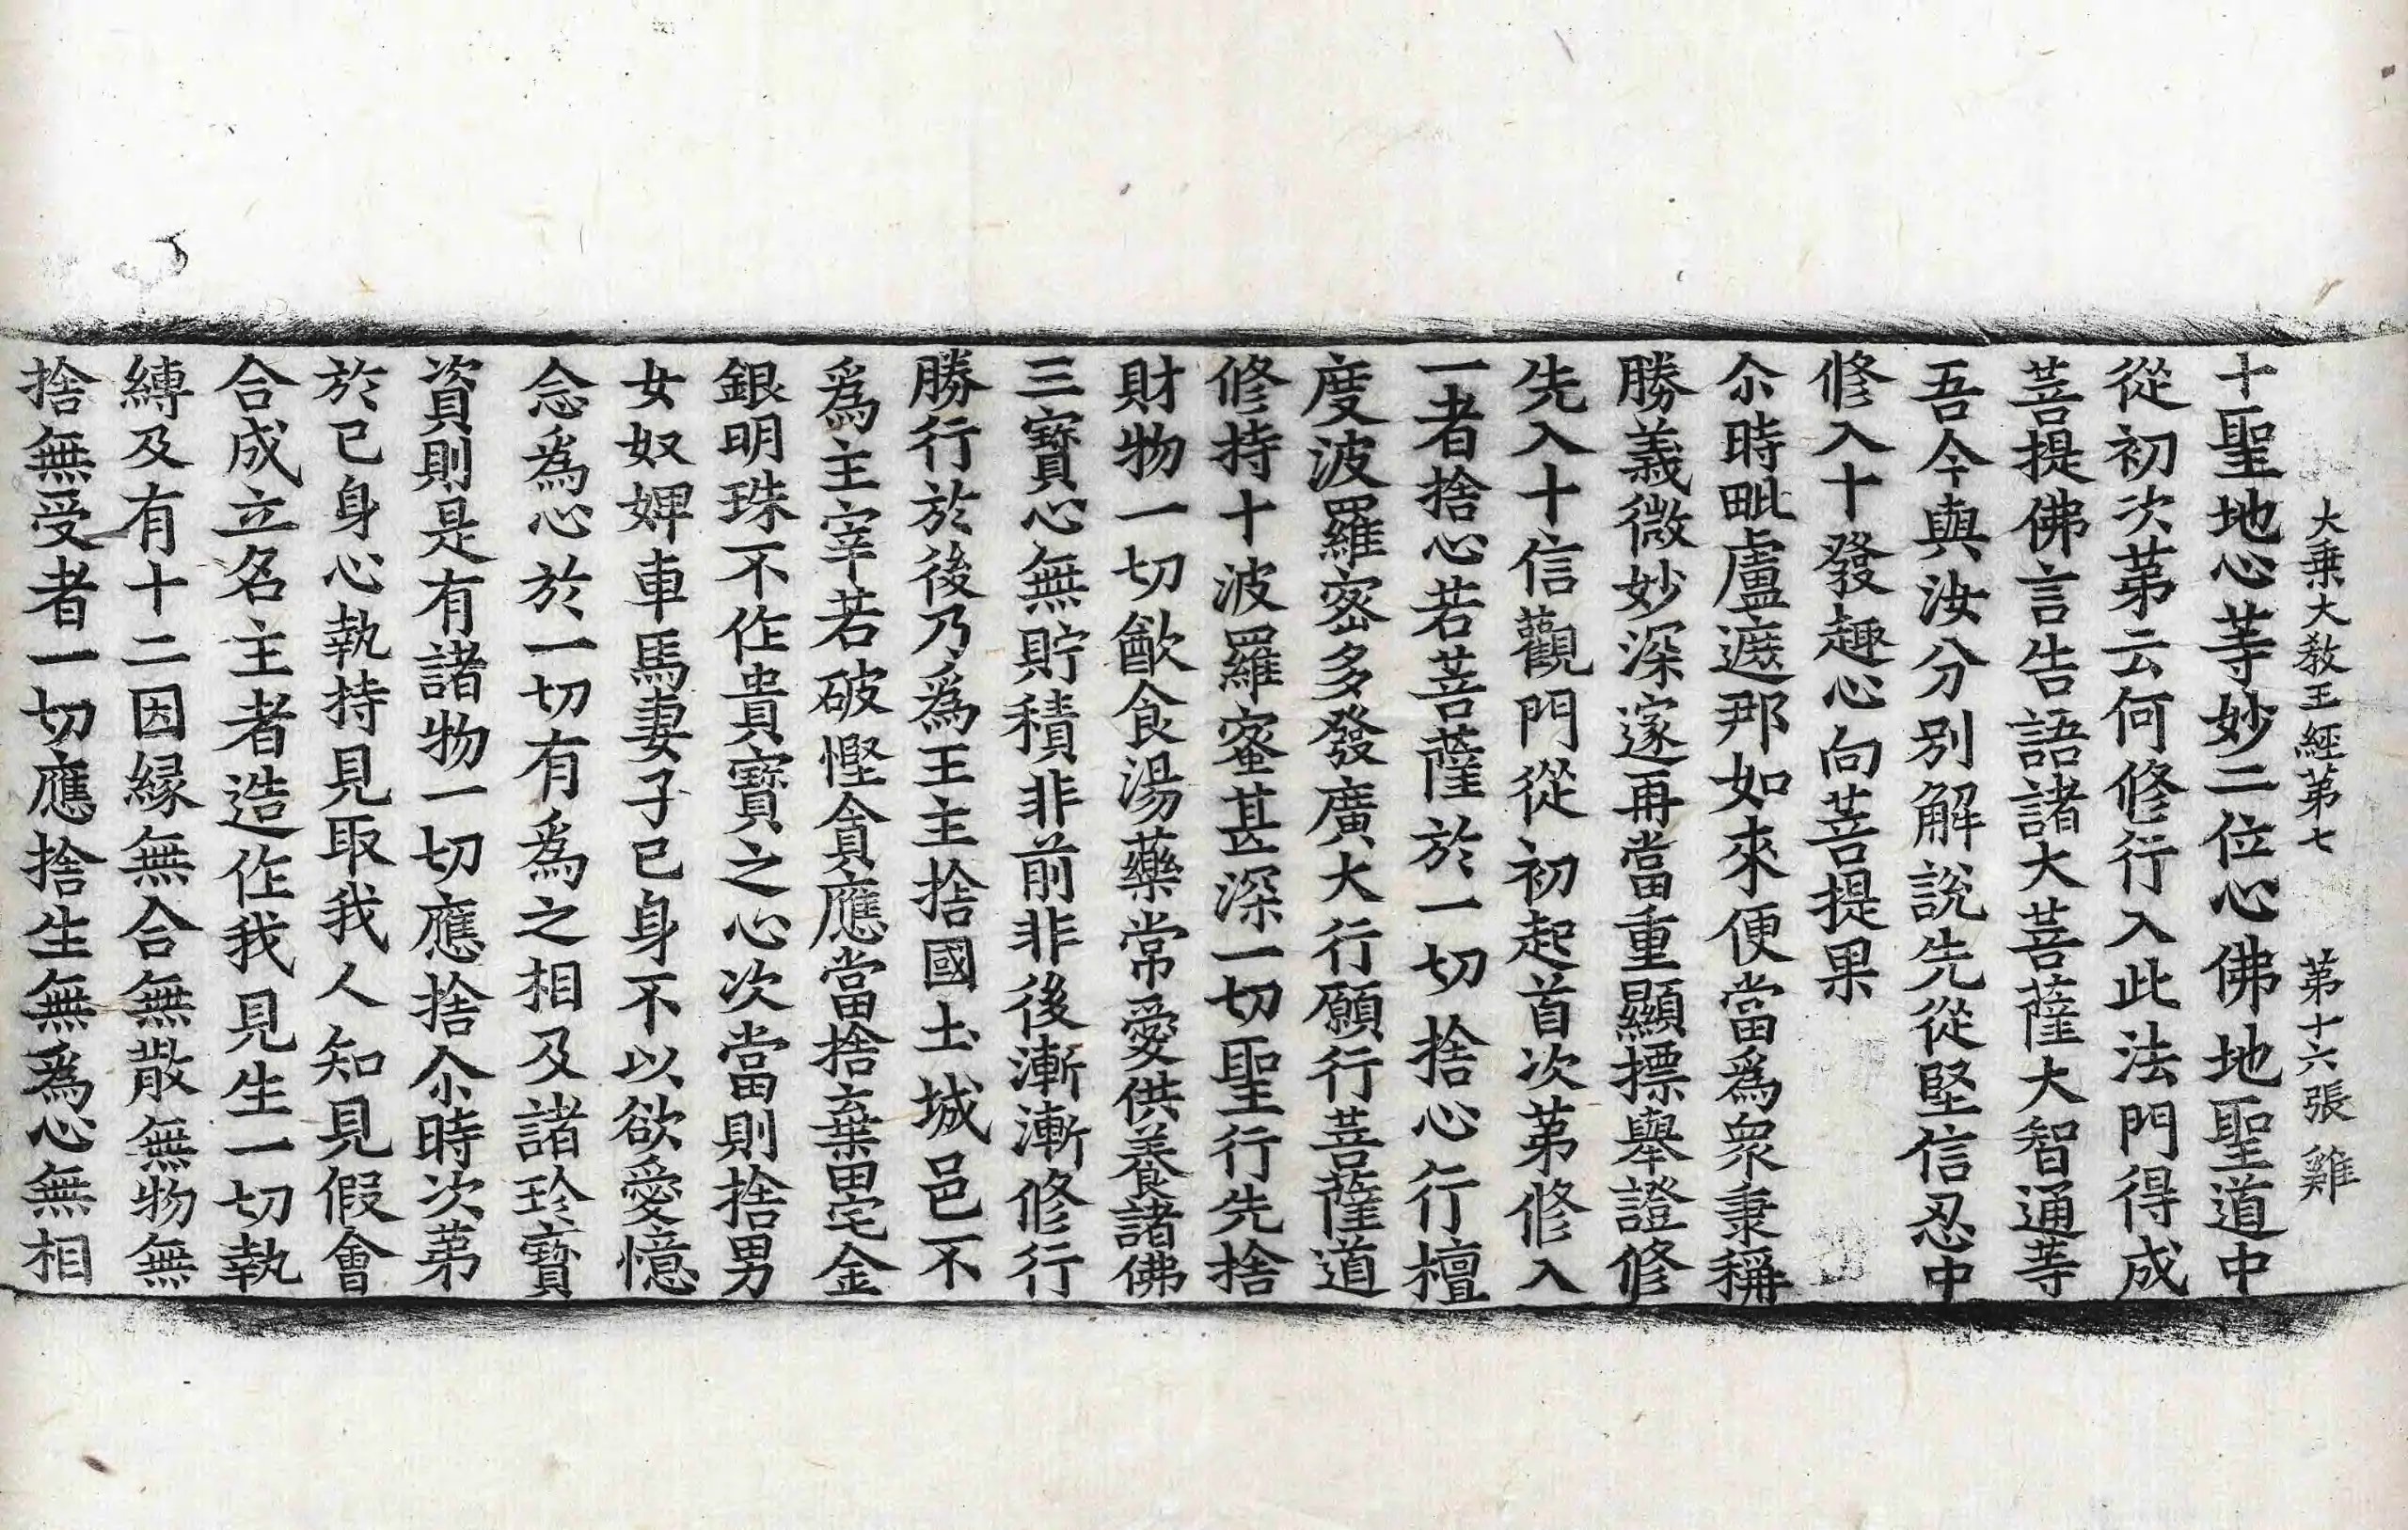 大乗大敎王經第七 第十六張 雞
十聖地心等妙二位心佛地聖道中
從初次第云何修行入此法門得成
菩提佛言告語諸大菩薩大智通等
吾今與汝分別解說先從堅信忍中
修入十發趣心向菩提果
尒時毗盧遮那如來便當爲衆秉稱
勝義微妙深邃再當重顯摽舉證修
先入十信觀門從初起首次第修入
一者捨心若菩薩於一切捨心行檀
度波羅密多發廣大行願行菩薩道
修持十波羅蜜甚深一切聖行先捨
財物一切飮食湯藥常愛供養諸佛
三寶心無貯積非前非後漸漸修行
勝行於後乃爲王主捨國土城邑不
爲主宰若破慳貪應當捨棄田宅金
銀明珠不作貴寶之心次當則捨男
女奴婢車馬妻子已身不以欲愛憶
念爲心於一切有爲之相及諸珍寶
資則是有諸物一切應捨尒時次第
於已身心執持見取我人知見假會
合成立名主者造作我見生一切執
縛及有十二因緣無合無散無物無
捨無受者一切應捨生無爲心無相